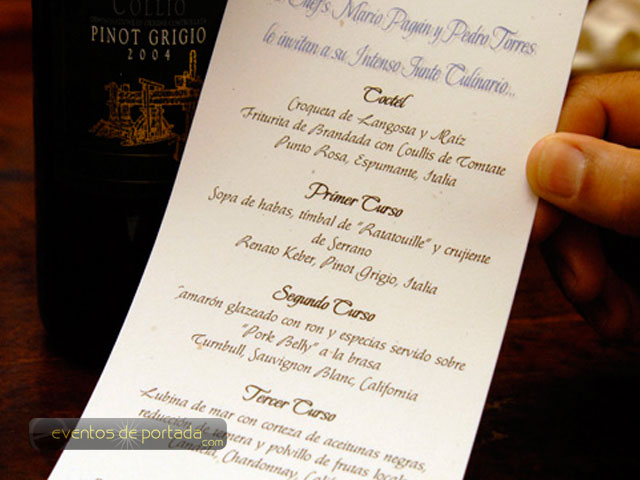 COLLIO
PINOT GRIGIO
2004
Chefs Mario Pagán y Pedro Torres
le invitan a su Intenso Junte Culinario...
Coctél
Croqueta de Langosta y Maíz
Friturita de Brandada con Coullis de Tomtate
Punto Rosa, Espumante, Italia
Primer Curso
Sopa de habas, timbal de "Ratatouille" y crujiente
de Serrano
Renato Keber, Pinot Grigio, Italia
Segundo Curso
amarón glazeado con ron y especias servido sobre
"Pork Belly" a la brasa
Turnbull, Sauvignon Blanc, California
Tercer Curso
Lubina de mar con corteza de aceitunas negras,
reducción de ternera y polvillo de frutas locales
Candela, Chardonnay, California
eventos de portada.com